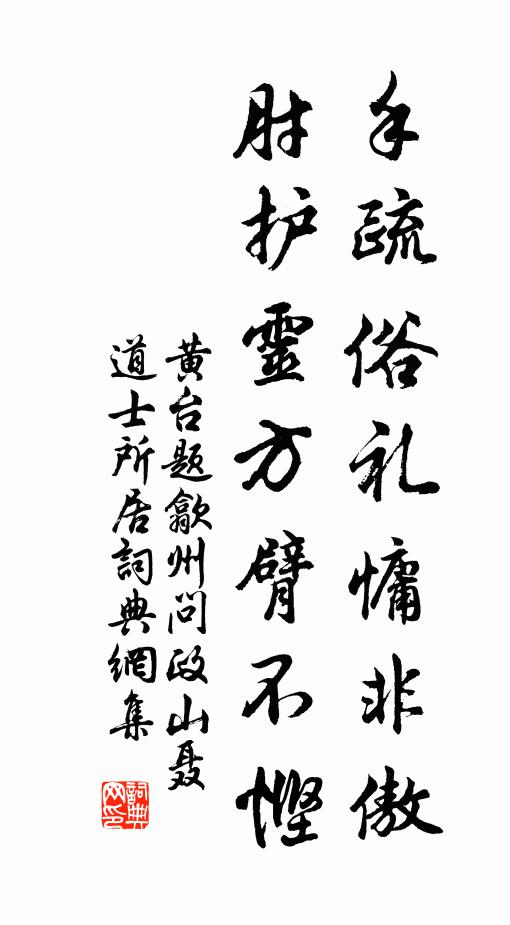 手疏俗礼慵非傲
肘护靈方臂不慳
黄台题歙州问政山聂
道士所居詞典網集
詞典网印